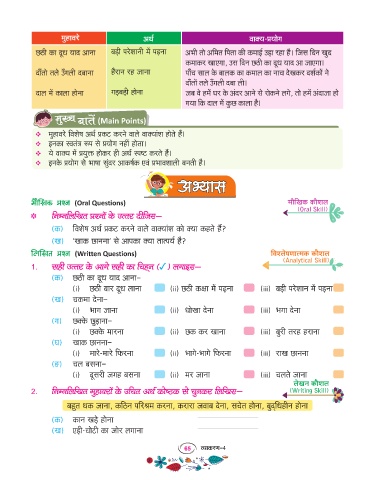 मुहावरे अर्थ वाक्य-प्रयोग
छठी का दूध याद आना बड़ी परेशानी में पड़ना अभी तो अमित पिता की कमाई उड़ा रहा है। जिस दिन खुद
कमाकर खाएगा, उस दिन छठी का दूध याद आ जाएगा।
दाँतों तले उँगली दबाना हैरान रह जाना पाँच साल के बालक का कमाल का नाच देखकर दर्शकों ने
दाँतों तले उँगली दबा ली।
दाल में काला होना गड़बड़ी होना जब वे हमें घर के अंदर आने से रोकने लगे, तो हमें अंदाजा हो
गया कि दाल में कुछ काला है।
मुख्य बातें (Main Points)
❖ मुहावरे विशेष अर्थ प्रकट करने वाले वाक्यांश होते हैं।
❖ इनका स्वतंत्र रूप से प्रयोग नहीं होता।
❖ ये वाक्य में प्रयुक्त होकर ही अर्थ स्पष्ट करते हैं।
❖ इनके प्रयोग से भाषा सुंदर आकर्षक एवं प्रभावशाली बनती है।
अभ्यास
मौखिक प्रश्न (Oral Questions) मौखिक कौशल
(Oral Skill)
निम्नलिखित प्रश्नों के उत्तर दीजिए—
(क) विशेष अर्थ प्रकट करने वाले वाक्यांश को क्या कहते हैं?
(ख) 'खाक छानना' से आपका क्या तात्पर्य है?
लिखित प्रश्न (Written Questions) विश्लेषणात्मक कौशल
(Analytical Skill)
1. सही उत्तर के आगे सही का चिह्न (✓) लगाइए—
(क) छठी का दूध याद आना–
(i) छठी बार दूध लाना (ii) छठी कक्षा में पढ़ना (iii) बड़ी परेशान में पड़ना
(ख) चकमा देना–
(i) भाग जाना (ii) धोखा देना (iii) भगा देना
(ग) छक्के छुड़ाना–
(i) छक्के मारना (ii) छक कर खाना (iii) बुरी तरह हराना
(घ) खाक छानना–
(i) मारे-मारे फिरना (ii) भागे-भागे फिरना (iii) राख छानना
(ङ) चल बसना–
(i) दूसरी जगह बसना (ii) मर जाना (iii) चलते जाना
लेखन कौशल
(Writing Skill)
2. निम्नलिखित मुहावरों के उचित अर्थ कोष्ठक से चुनकर लिखिए—
बहुत थक जाना, कठिन परिश्रम करना, करारा जवाब देना, सचेत होना, बुद्धिहीन होना
(क) कान खड़े होना
(ख) एड़ी-चोटी का जोर लगाना
65 व्याकरण-4